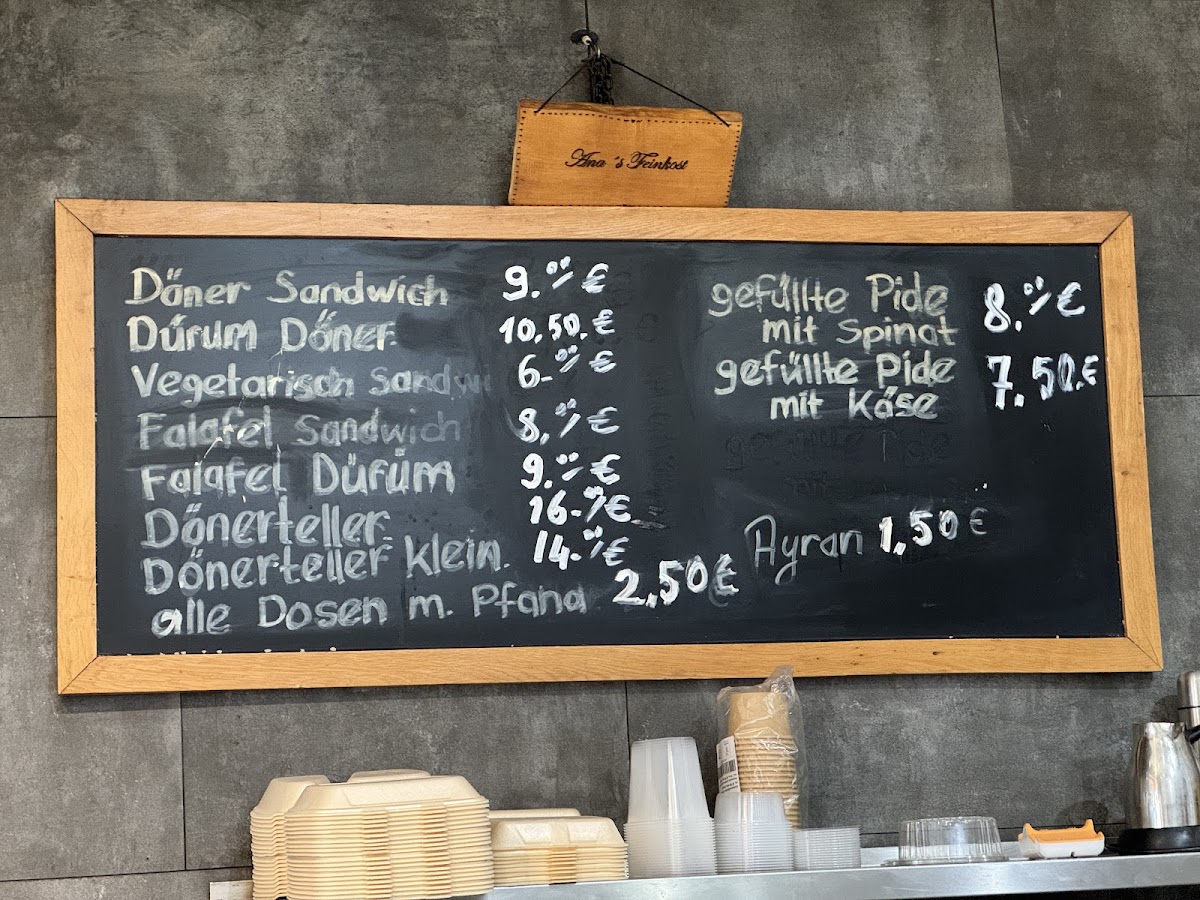 Ana's Feinkost
Döner Sandwich 9.-/ €
Dürum Döner 10,50.€
Vegetarisch Sandwi 6.-/ €
Falafel Sandwich 8,-/ €
Falafel Dürüm 9.-/ €
Dönerteller 16.-/€
Dönerteller klein. 14.-/€
alle Dosen m. Pfand 2,50€
gefüllte Pide
mit Spinat 8.-/€
gefüllte Pide
mit Käse 7,50.€
Ayran 1,50 €